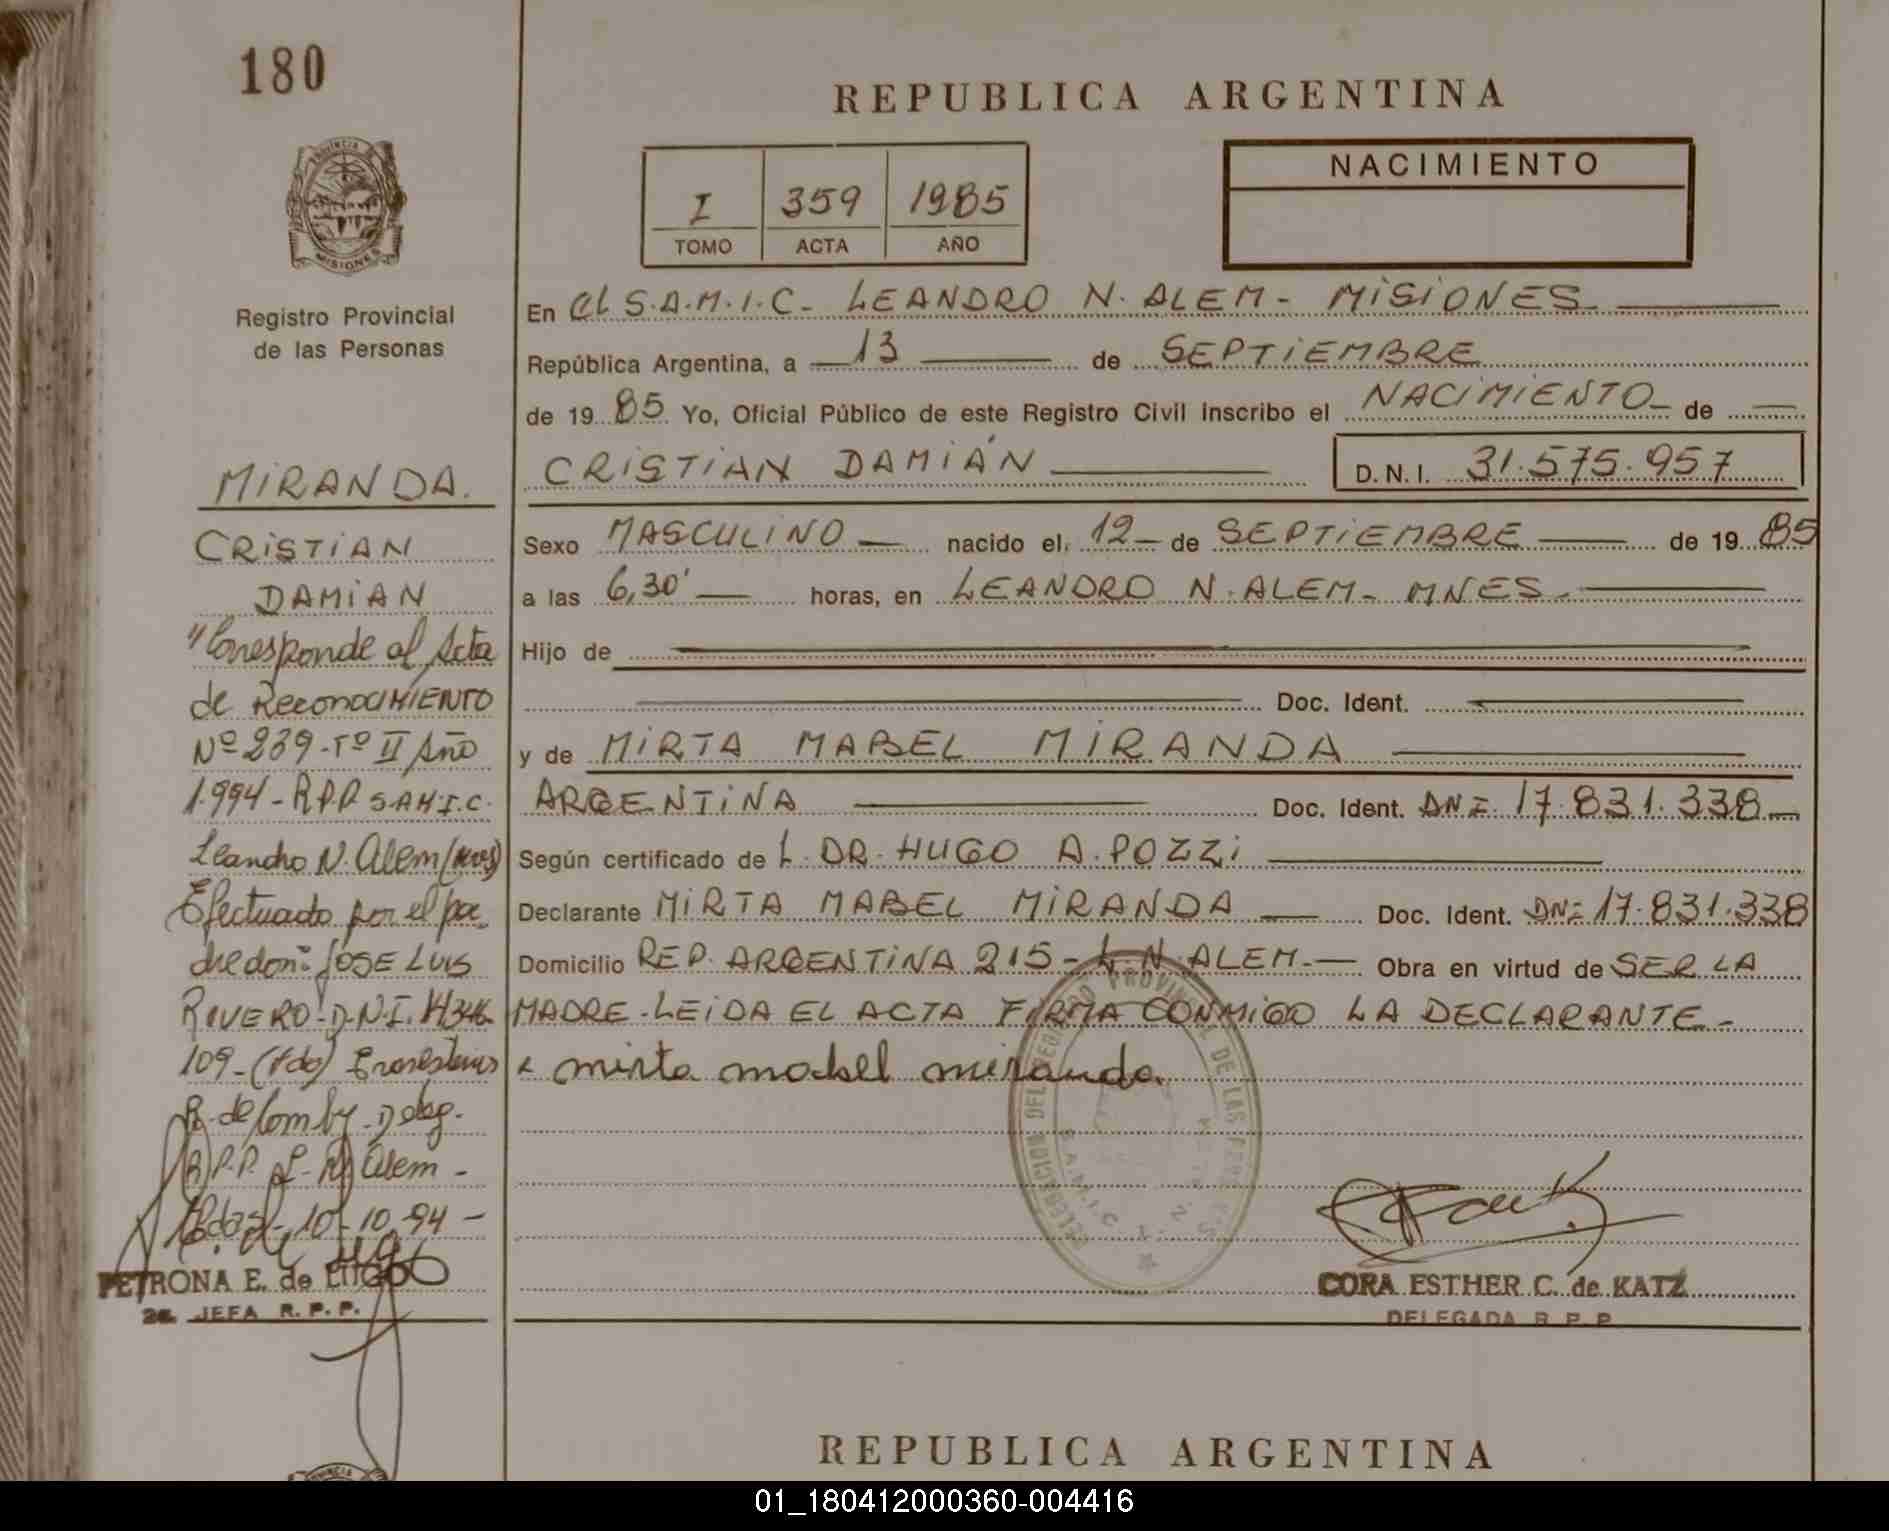 180
REPUBLICA ARGENTINA
NACIMIENTO
I 359 1985
TOMO ACTA AÑO
MISIONES
Registro Provincial
de las Personas
En el S.A.M.I.C- LEANDRO N. ALEM- MISIONES
República Argentina, a 13 de SEPTIEMBRE
de 1985 Yo, Oficial Público de este Registro Civil inscribo el NACIMIENTO- de
CRISTIAN DAMIÁN D.N.I. 31.575.957
Sexo MASCULINO nacido el, 12- de SEPTIEMBRE de 1985
a las 6,30' horas, en LEANDRO N. ALEM- MNES-
Hijo de
Doc. Ident.
y de MIRTA MABEL MIRANDA
ARGENTINA Doc. Ident. DNI. 17.831.338-
Según certificado de L. DR. HUGO A. POZZI
Declarante MIRTA MABEL MIRANDA Doc. Ident. DNI 17.831.338
Domicilio REP. ARGENTINA 215- L.N.ALEM- Obra en virtud de SER LA
MADRE-LEIDA EL ACTA FIRMA CONMIGO LA DECLARANTE-
mirta mabel miranda.
CORA ESTHER C. de KATZ
DELEGADA R. P. P.
MIRANDA.
CRISTIAN
DAMIAN
"Corresponde al Acta
de RECONOCIMIENTO
Nº 239-Tº II Año
1.994- R.P.P S.A.M.I.C.
Leandro N. Alem (Mnes)
Efectuado por el pa-
dre don: JOSE LUIS
RIVERO-D.N.I. 14.346.
109-(fdo)
R. de Comby-Deleg.
R.P.P. L. N. Alem-
Pdas- 10-10-94-
PETRONA E. de LUGO
2a. JEFA R. P. P.
DELEGACION DEL REGISTRO PROVINCIAL DE LAS PERSONAS
S.A.M.I.C. L. N.
REPUBLICA ARGENTINA
01_180412000360-004416